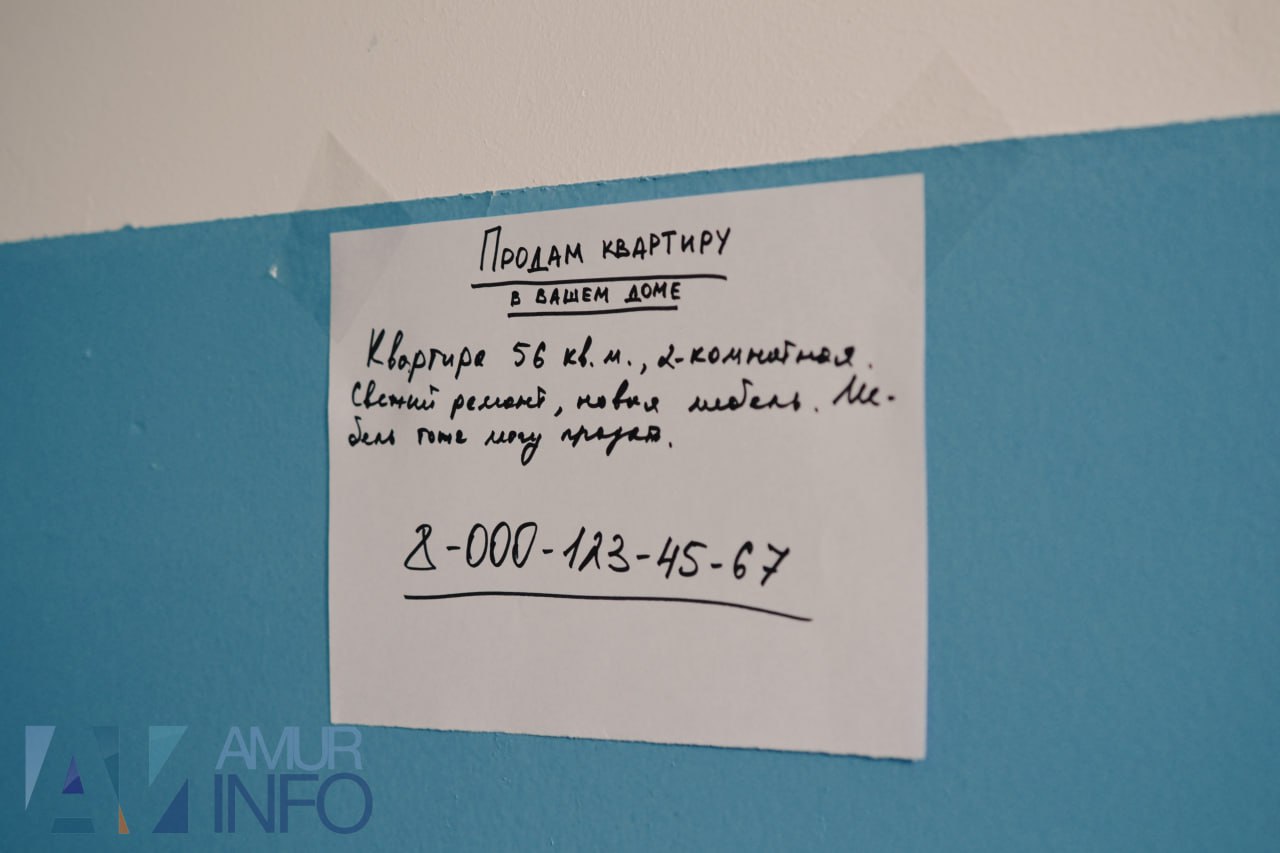 ПРОДАМ КВАРТИРУ
В ВАШЕМ ДОМЕ
Квартира 56 кв.м., 2-комнатная.
Свежий ремонт, новая мебель. Ме-
бель тоже могу продать.
8-000-123-45-67
AMUR
INFO